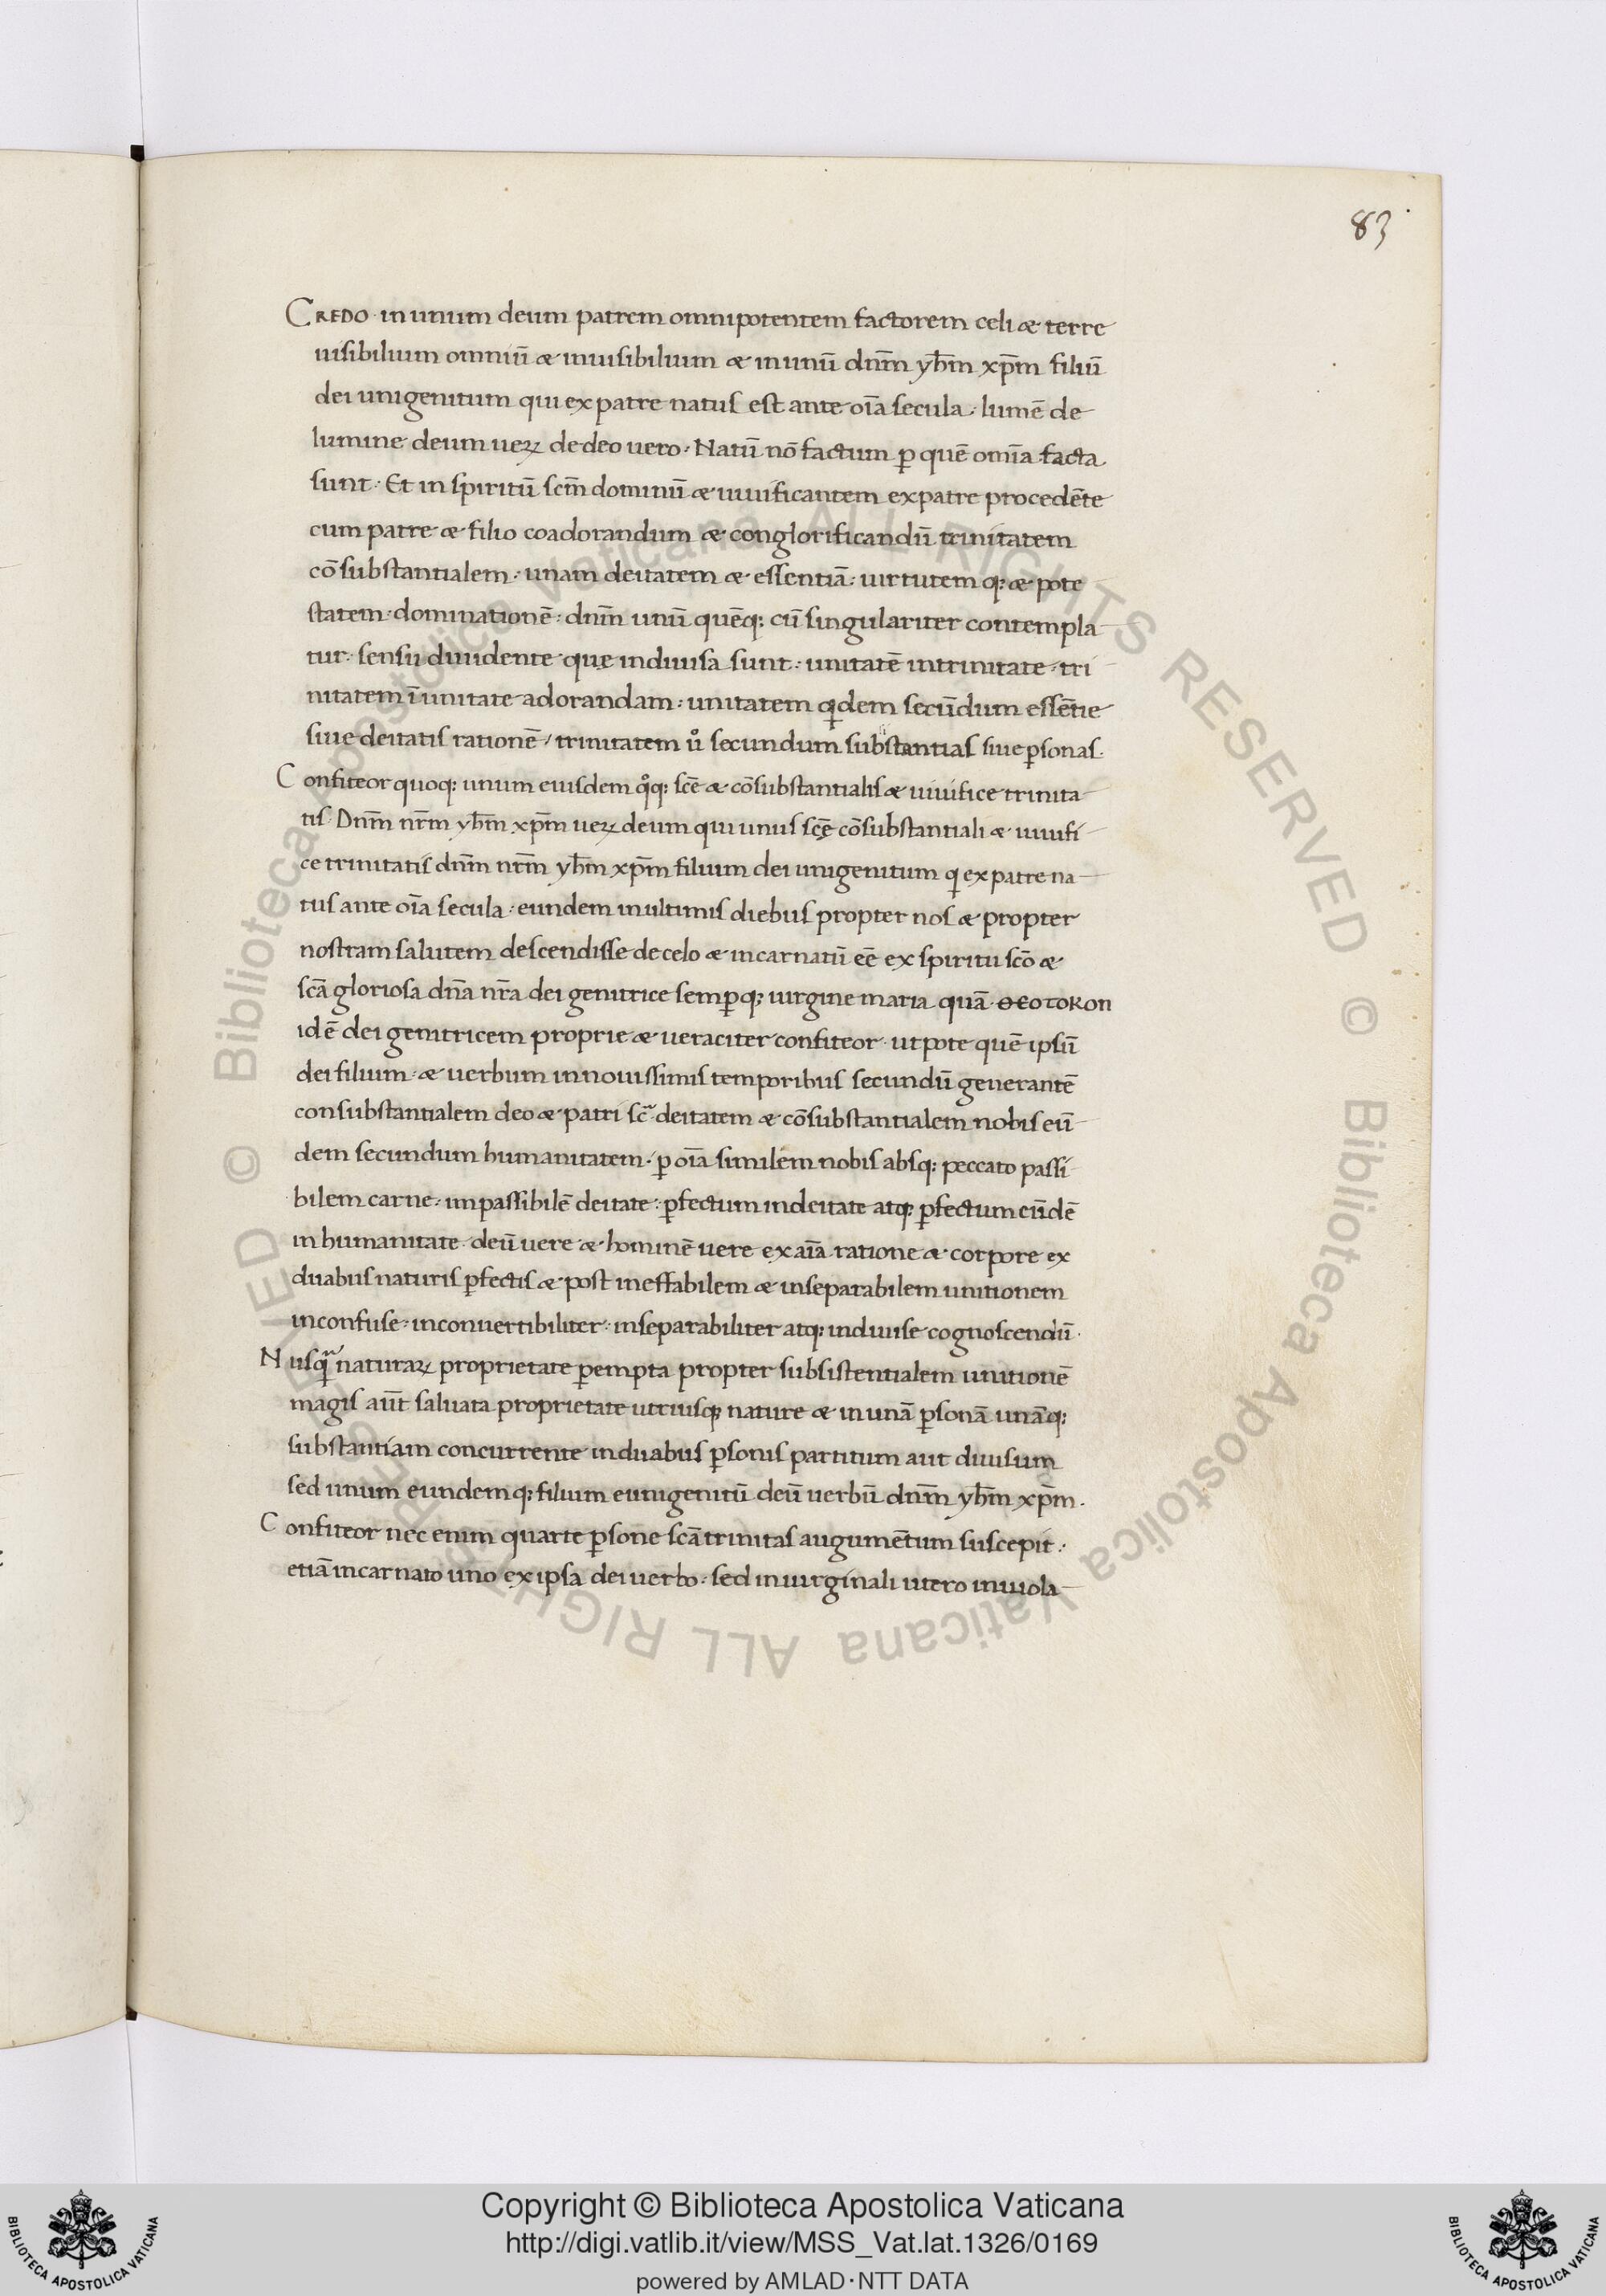 83
CREDO in unum deum patrem omnipotentem factorem celi æ terre
uisibilium omniū æ inuisibilium æ in unū dn̄m yh̄m xp̄m filiū
dei unigenitum qui ex patre natus est ante oīa secula· lumē de
lumine deum ueꝝ de deo uero· Natū nō factum ꝑ quē omīa facta
sunt· Et in spiritū sc̄m dominū æ uiuificantem ex patre procedēte
cum patre æ filio coadorandum æ conglorificandū trinitatem
cōsubstantialem· unam deitatem æ essentiā· uirtutem q; æ pote
statem· dominationē· dn̄m unū quēq; cū singulariter contempla
tur· sensu diuidente que indiuisa sunt· unitatē in trinitate· tri
nitatem ī unitate adorandam· unitatem qidem secūdum essētie
siue deitatis rationē/ trinitatem uͦ secundum substantias siue ꝑsonas·
Confiteor quoq; unum eiusdem qͦq; scē æ cōsubstantialis æ uiuifice trinita
tis· Dn̄m nr̄m yh̄m xp̄m ueꝝ deum qui unus scē cōsubstantiali æ uiuifi
ce trinitatis dn̄m nr̄m yh̄m xp̄m filium dei unigenitum qi ex patre na
tus ante oīa secula· eundem in ultimis diebus propter nos æ propter
nostram salutem descendisse de celo æ incarnatū eē ex spiritu scō æ
scā gloriosa dn̄a nr̄a dei genitrice semꝑq; uirgine maria quā θεοτοκοn
idē dei genitricem proprie æ ueraciter confiteor· utpote quē ipsū
dei filium æ uerbum in nouissimis temporibus secundū generantē
consubstantialem deo æ patri sc̄ deitatem æ cōsubstantialem nobis eū
dem secundum humanitatem· ꝑ oīa similem nobis absq; peccato passi
bilem carne· impassibilē deitate· ꝑfectum in deitate atq; ꝑfectum eūdē
in humanitate deū uere æ hominē uere ex aīa ratione æ corpore ex
duabus naturis ꝑfectis æ post ineffabilem æ inseparabilem unitionem
inconfuse· inconuertibiliter· inseparabiliter atq; indiuise cognoscendū·
Nusqᷓ naturaꝝ proprietate ꝑempta propter subsistentialem unitionē
magis aūt saluata proprietate utriusq; nature æ in unā ꝑsonā unāq;
substantiam concurrente in duabus ꝑsonis partitum aut diuisum
sed unum eundemq; filium eunigenitū deū uerbū dn̄m yh̄m xp̄m·
Confiteor nec enim quarte ꝑsone scā trinitas augumētum suscepit·
etiā incarnato uno ex ipsa dei uerbo· sed in uirginali utero inuiola
© Biblioteca Apostolica Vaticana ALL RIGHTS RESERVED
© Biblioteca Apostolica Vaticana ALL RIGHTS RESERVED
Copyright © Biblioteca Apostolica Vaticana
http://digi.vatlib.it/view/MSS_Vat.lat.1326/0169
powered by AMLAD·NTT DATA
BIBLIOTECA APOSTOLICA VATICANA
BIBLIOTECA APOSTOLICA VATICANA